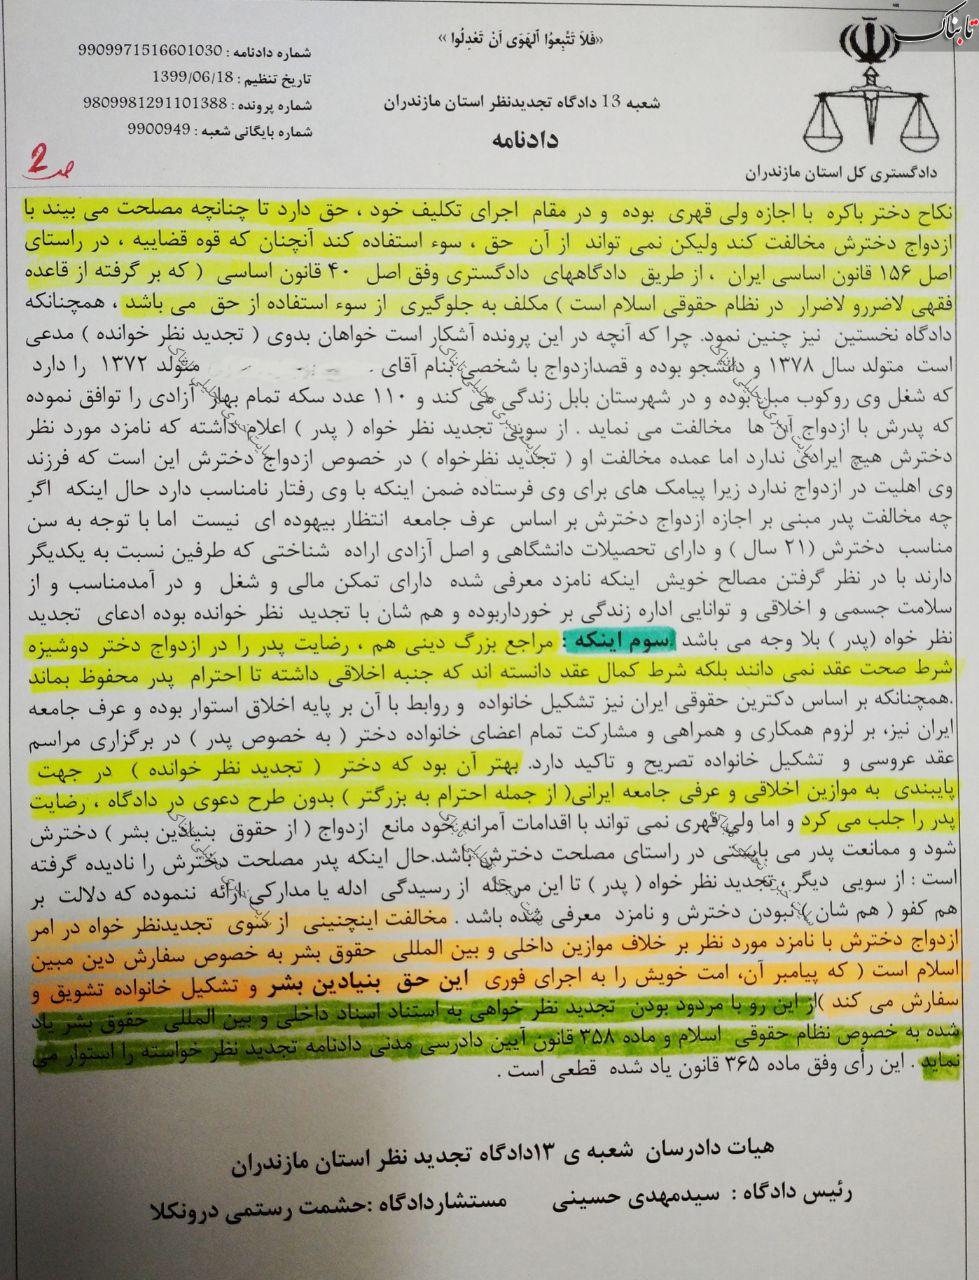 تابناک
«فَلاَ تَتَّبِعوُا اَلهَوَی اَنْ تَعْدِلُوا»
شماره دادنامه : 9909971516601030
تاریخ تنظیم : 1399/06/18
شعبه 13 دادگاه تجدیدنظر استان مازندران
شماره پرونده : 9809981291101388
شماره بایگانی شعبه : 9900949
دادنامه
دادگستری کل استان مازندران
ص2
نکاح دختر باکره با اجازه ولی قهری بوده و در مقام اجرای تکلیف خود ، حق دارد تا چنانچه مصلحت می بیند با
ازدواج دخترش مخالفت کند ولیکن نمی تواند از آن حق ، سوء استفاده کند آنچنان که قوه قضاییه ، در راستای
اصل ۱۵۶ قانون اساسی ایران ، از طریق دادگاههای دادگستری وفق اصل ۴۰ قانون اساسی ( که بر گرفته از قاعده
فقهی لاضررو لاضرار در نظام حقوقی اسلام است ) مکلف به جلوگیری از سوء استفاده از حق می باشد ، همچنانکه
دادگاه نخستین نیز چنین نمود. چرا که آنچه در این پرونده آشکار است خواهان بدوی ( تجدید نظر خوانده ) مدعی
است متولد سال ۱۳۷۸ و دانشجو بوده و قصدازدواج با شخصی بنام آقای متولد ۱۳۷۲ را دارد
که شغل وی روکوب مبل بوده و در شهرستان بابل زندگی می کند و ۱۱۰ عدد سکه تمام بهار آزادی را توافق نموده
که پدرش با ازدواج آن ها مخالفت می نماید . از سویی تجدید نظر خواه ( پدر ) اعلام داشته که نامزد مورد نظر
دخترش هیچ ایرادی ندارد اما عمده مخالفت او ( تجدید نظرخواه ) در خصوص ازدواج دخترش این است که فرزند
وی اهلیت در ازدواج ندارد زیرا پیامک های برای وی فرستاده ضمن اینکه با وی رفتار نامناسب دارد حال اینکه اگر
چه مخالفت پدر مبنی بر اجازه ازدواج دخترش بر اساس عرف جامعه انتظار بیهوده ای نیست اما با توجه به سن
مناسب دخترش (۲۱ سال ) و دارای تحصیلات دانشگاهی و اصل آزادی اراده شناختی که طرفین نسبت به یکدیگر
دارند با در نظر گرفتن مصالح خویش اینکه نامزد معرفی شده دارای تمکن مالی و شغل و در آمدمناسب و از
سلامت جسمی و اخلاقی و توانایی اداره زندگی بر خورداربوده و هم شان با تجدید نظر خوانده بوده ادعای تجدید
نظر خواه (پدر ) بلا وجه می باشد .سوم اینکه : مراجع بزرگ دینی هم ، رضایت پدر را در ازدواج دختر دوشیزه
شرط صحت عقد نمی دانند بلکه شرط کمال عقد دانسته اند که جنبه اخلاقی داشته تا احترام پدر محفوظ بماند
.همچنانکه بر اساس دکترین حقوقی ایران نیز تشکیل خانواده و روابط با آن بر پایه اخلاق استوار بوده و عرف جامعه
ایران نیز، بر لزوم همکاری و همراهی و مشارکت تمام اعضای خانواده دختر ( به خصوص پدر ) در برگزاری مراسم
عقد عروسی و تشکیل خانواده تصریح و تاکید دارد. بهتر آن بود که دختر ( تجدید نظر خوانده ) در جهت
پایبندی به موازین اخلاقی و عرفی جامعه ایرانی( از جمله احترام به بزرگتر ) بدون طرح دعوی در دادگاه ، رضایت
پدر را جلب می کرد و اما ولی قهری نمی تواند با اقدامات آمرانه خود مانع ازدواج ( از حقوق بنیادین بشر ) دخترش
شود و ممانعت پدر می بایستی در راستای مصلحت دخترش باشد.حال اینکه پدر مصلحت دخترش را نادیده گرفته
است : از سویی دیگر ، تجدید نظر خواه ( پدر ) تا این مرحله از رسیدگی ادله یا مدارکی ارائه ننموده که دلالت بر
هم کفو ( هم شان ) نبودن دخترش و نامزد معرفی شده باشد . مخالفت اینچنینی از سوی تجدیدنظر خواه در امر
ازدواج دخترش با نامزد مورد نظر بر خلاف موازین داخلی و بین المللی حقوق بشر به خصوص سفارش دین مبین
اسلام است ( که پیامبر آن، امت خویش را به اجرای فوری این حق بنیادین بشر و تشکیل خانواده تشویق و
سفارش می کند )از این رو با مردود بودن تجدید نظر خواهی به استناد اسناد داخلی و بین المللی حقوق بشر یاد
شده به خصوص نظام حقوقی اسلام و ماده ۳۵۸ قانون آیین دادرسی مدنی دادنامه تجدید نظر خواسته را استوار می
نماید . این رأی وفق ماده ۳۶۵ قانون یاد شده قطعی است .
هیات دادرسان شعبه ی ۱۳دادگاه تجدید نظر استان مازندران
رئیس دادگاه : سیدمهدی حسینی مستشاردادگاه :حشمت رستمی درونکلا